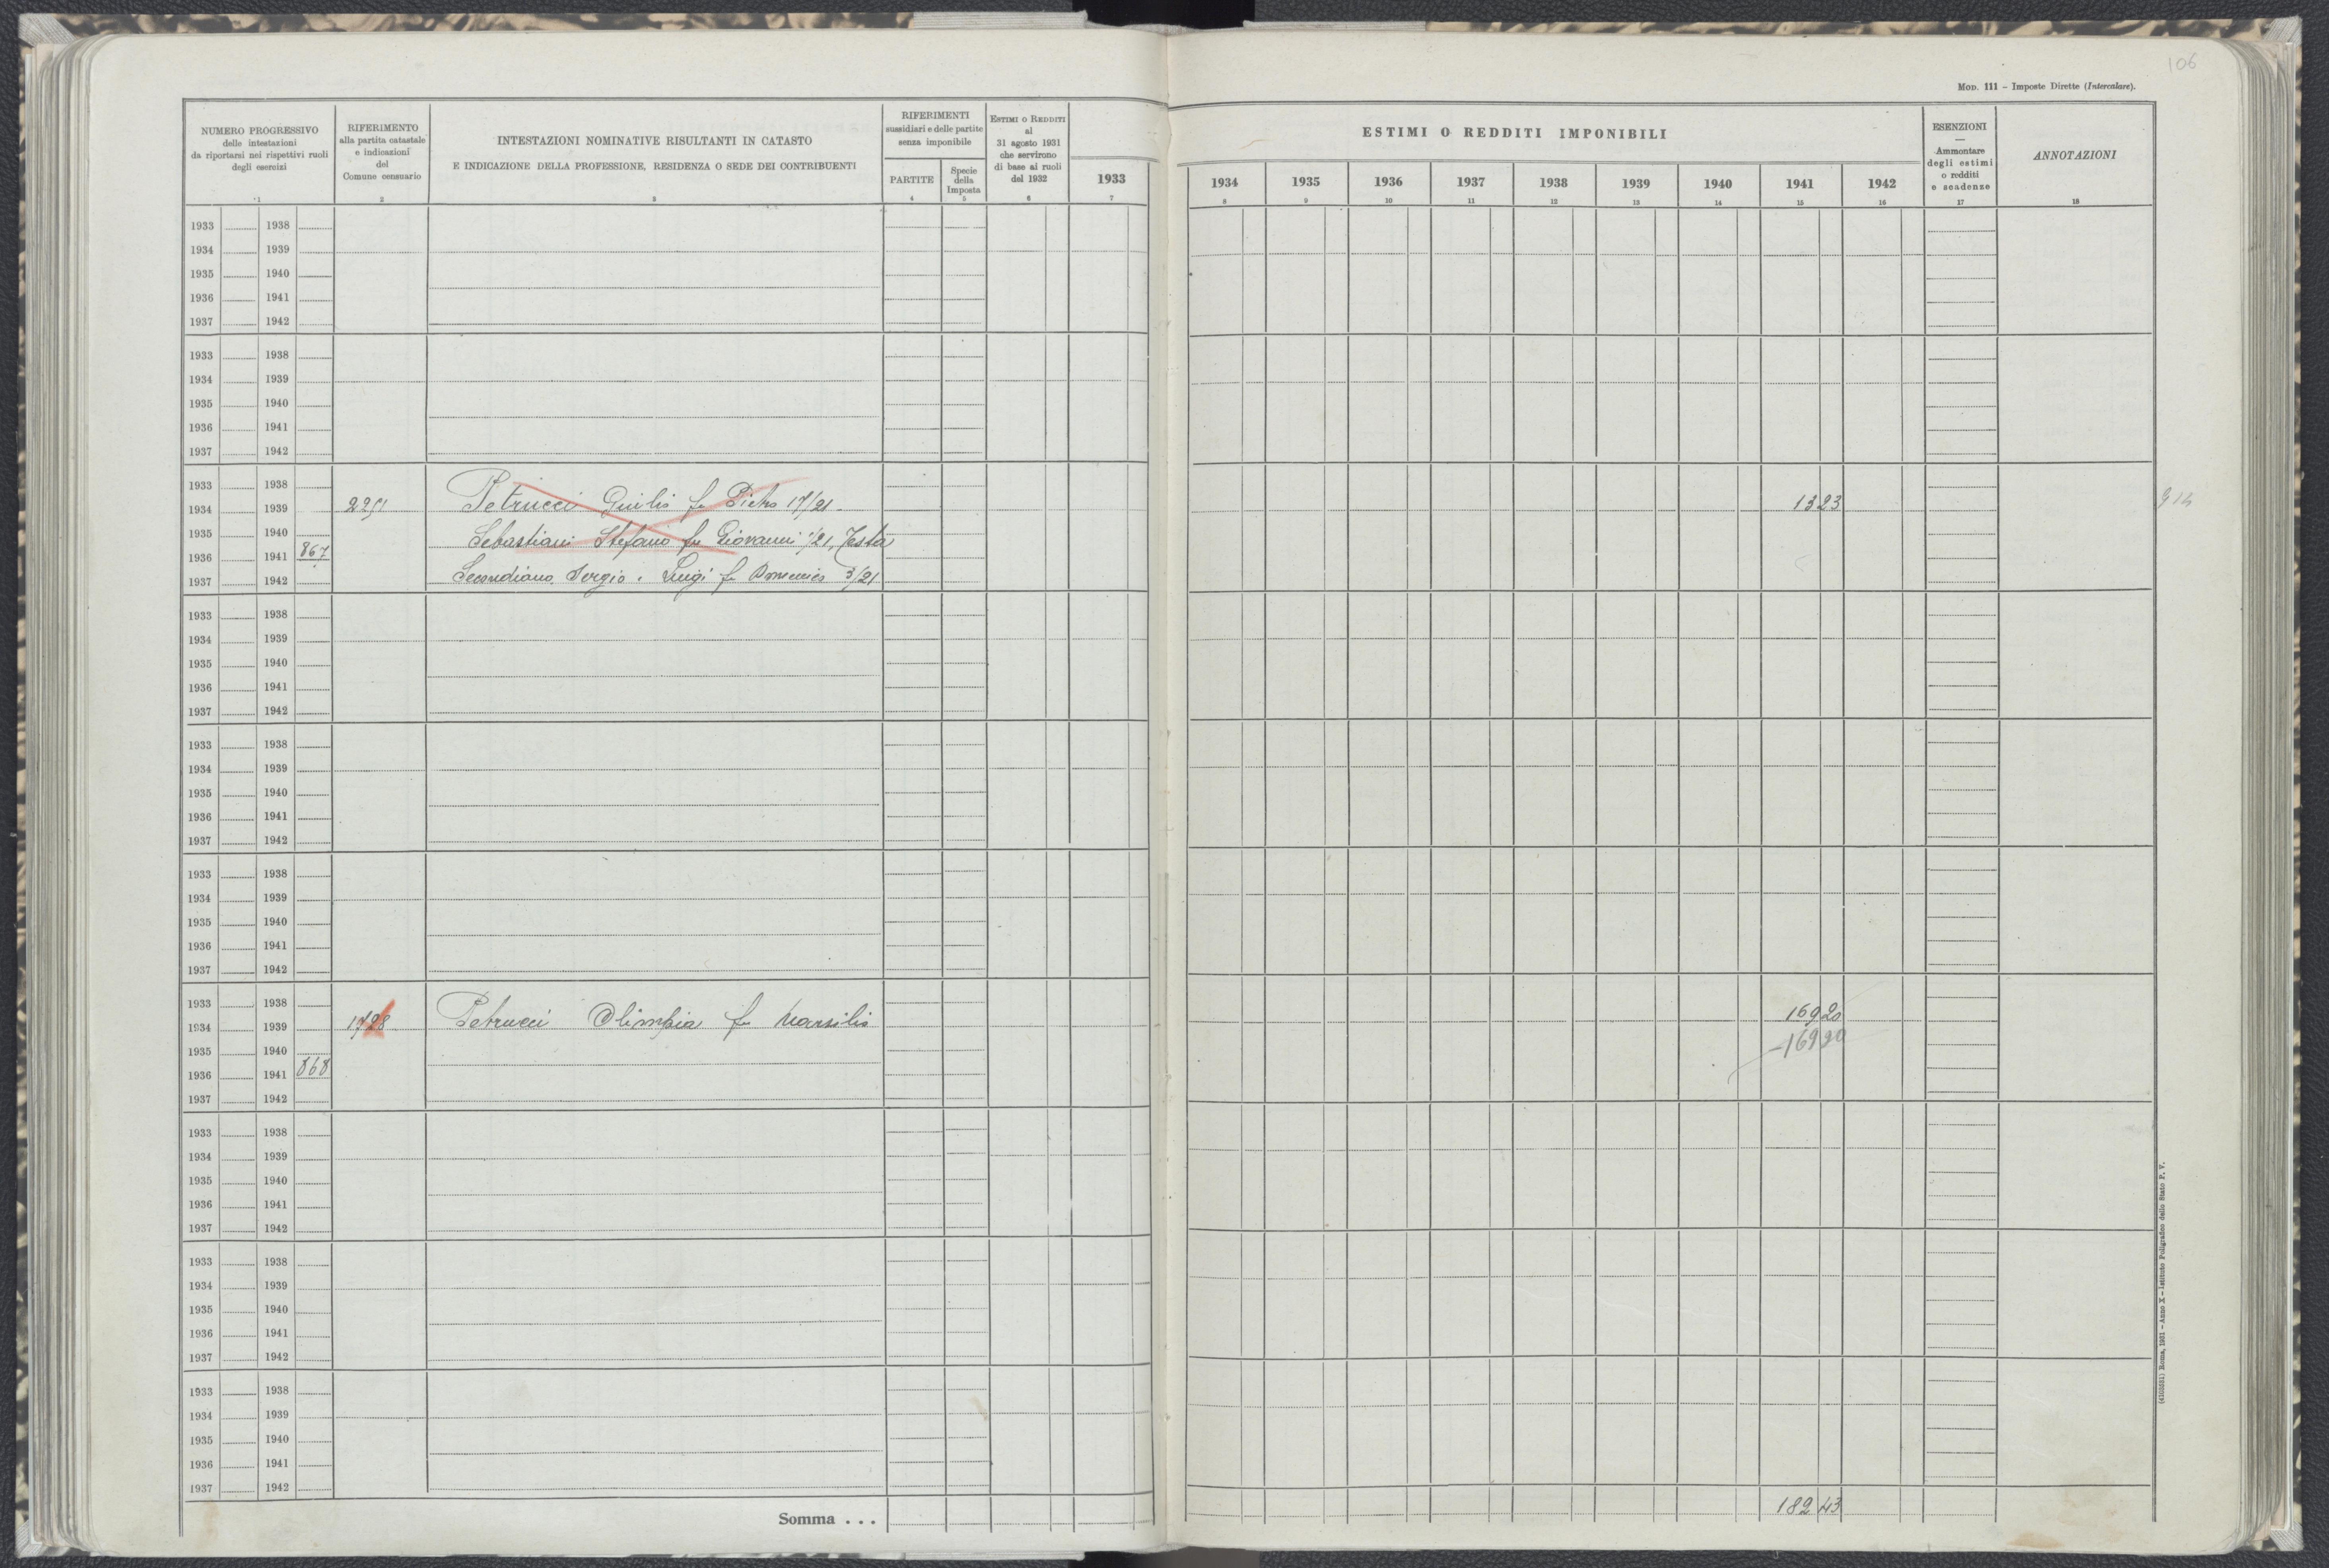 106
MOD. 111 – Imposte Dirette (Intercalare).
NUMERO PROGRESSIVO
delle intestazioni
da riportarsi nei rispettivi ruoli
degli esercizi
1
RIFERIMENTO
alla partita catastale
e indicazioni
del
Comune censuario
2
INTESTAZIONI NOMINATIVE RISULTANTI IN CATASTO
E INDICAZIONE DELLA PROFESSIONE, RESIDENZA O SEDE DEI CONTRIBUENTI
3
RIFERIMENTI
sussidiari e delle partite
senza imponibile
PARTITE
4
Specie
della
Imposta
5
ESTIMI O REDDITI
al
31 agosto 1931
che servirono
di base ai ruoli
del 1932
6
1933
7
ESTIMI O REDDITI IMPONIBILI
1934 1935 1936 1937 1938 1939 1940 1941 1942
8 9 10 11 12 13 14 15 16
ESENZIONI
—
Ammontare
degli estimi
o redditi
e scadenze
17
ANNOTAZIONI
18
1933 1938
1934 1939
1935 1940
1936 1941
1937 1942
1933 1938
1934 1939
1935 1940
1936 1941
1937 1942
1933 1938
1934 1939 2251 Petrucci Giulio fu Pietro 17/21 1323
1935 1940 Sebastiani Stefano fu Giovanni 1/21, Testa
1936 1941 867
1937 1942 Secondiano, Sergio e Luigi fu Domenico 3/21
1933 1938
1934 1939
1935 1940
1936 1941
1937 1942
1933 1938
1934 1939
1935 1940
1936 1941
1937 1942
1933 1938
1934 1939
1935 1940
1936 1941
1937 1942
1933 1938
1934 1939 1728 Petrucci Olimpia fu Marsilio 16920
1935 1940 -16920
1936 1941 868
1937 1942
1933 1938
1934 1939
1935 1940
1936 1941
1937 1942
1933 1938
1934 1939
1935 1940
1936 1941
1937 1942
1933 1938
1934 1939
1935 1940
1936 1941
1937 1942
Somma . . . 18243
(4103531) Roma, 1931 – Anno X – Istituto Poligrafico dello Stato P. V.